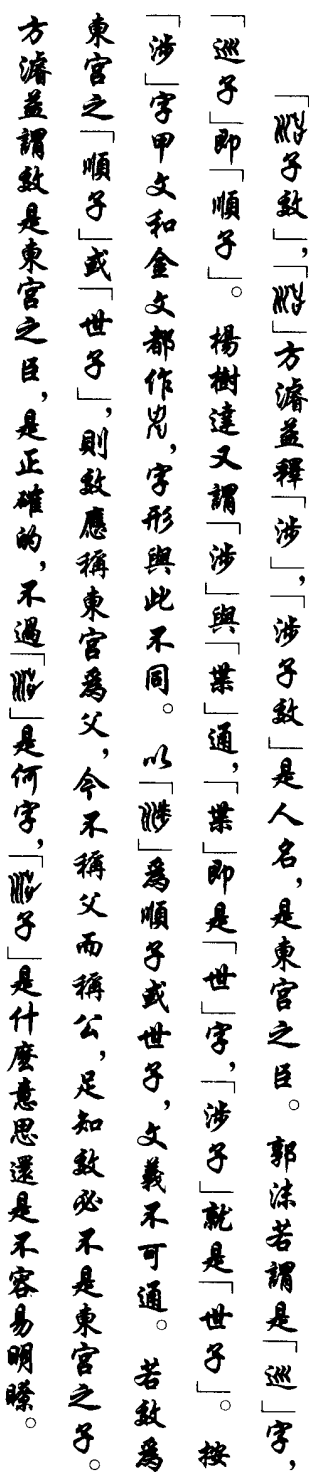 「子效」,「」方濬益釋「涉」,「涉子效」是人名,是東宮之臣。郭沫若謂是「巡」字,
「巡子」即「順子」。楊樹達又謂「涉」與「枼」通,「枼」即是「世」字,「涉子」就是「世子」。按
「涉」字甲文和金文都作,字形與此不同。以「」爲順子或世子,文義不可通。若效爲
東宮之「順子」或「世子」,則效應稱東宮爲父,今不稱父而稱公,足知效必不是東宮之子。
方濬益謂效是東宮之臣,是正確的,不過「」是何字,「子」是什麼意思還是不容易明瞭。